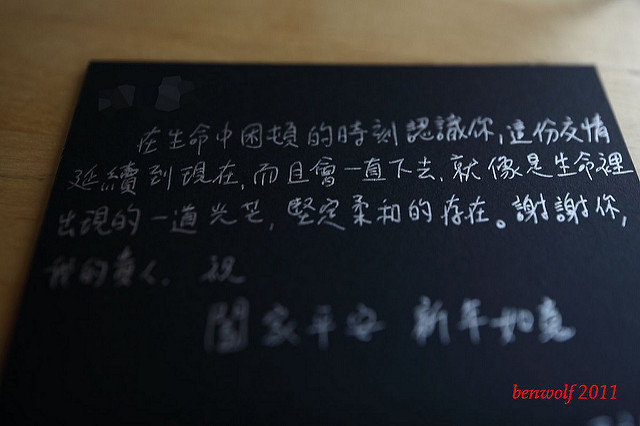 在生命中困頓的時刻認識你,這份友情
延續到現在,而且會一直下去,就像是生命裡
出現的一道光芒,堅定柔和的存在。謝謝你,
我的貴人. 祝
闔家平安 新年如意
benwolf 2011